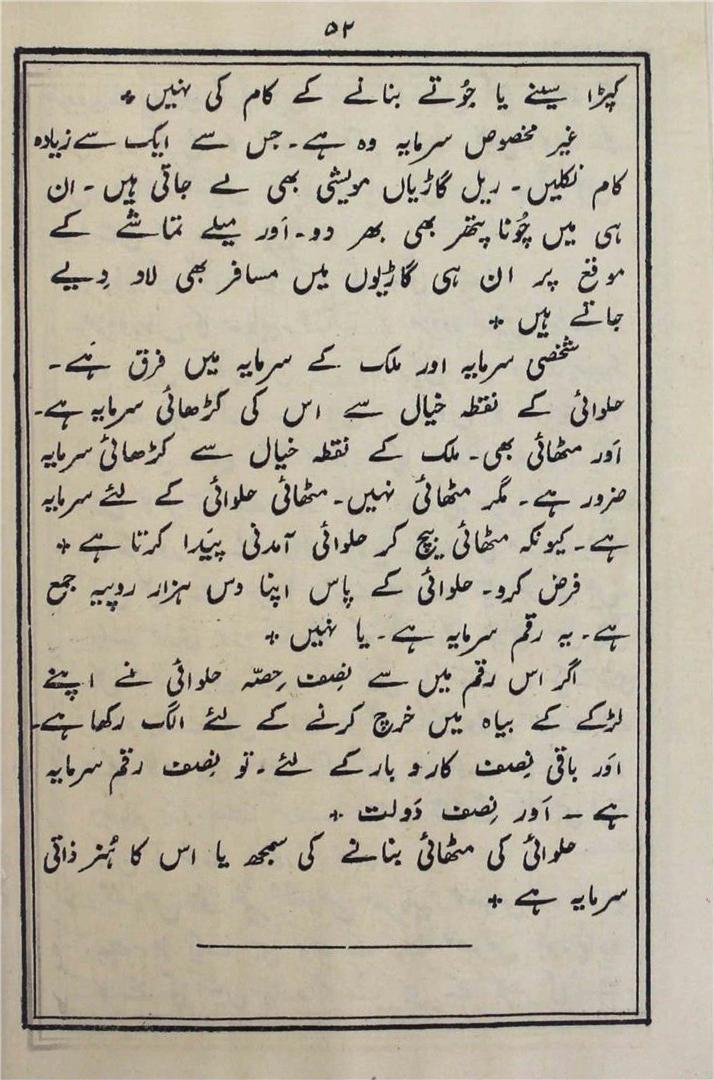 ۵۲
کپڑا سینے یا جُوتے بنانے کے کام کی نہیں +
غیر مخصوص سرمایہ وہ ہے۔ جس سے ایک سے زیادہ
کام نکلیں۔ ریل گاڑیاں مویشی بھی لے جاتی ہیں۔ ان
ہی میں چُونا پتھر بھی بھر دو۔ اَور میلے تماشے کے
موقع پر ان ہی گاڑیوں میں مسافر بھی لاد دِیے
جاتے ہیں +
شخصی سرمایہ اور ملک کے سرمایہ میں فرق ہَے۔
حلوائی کے نقطہ خیال سے اس کی کڑھائی سرمایہ ہے۔
اَور مٹھائی بھی۔ ملک کے نقطہ خیال سے کڑھائی سرمایہ
ضرور ہے۔ مگر مٹھائی نہیں۔ مٹھائی حلوائی کے لئے سرمایہ
ہے۔ کیونکہ مٹھائی بیچ کر حلوائی آمدنی پَیدا کرتا ہے +
فرض کرو۔ حلوائی کے پاس اپنا دس ہزار روپیہ جمع
ہے۔ یہ رقم سرمایہ ہے۔ یا نہیں +
اگر اس رقم میں سے نِصف حِصّہ حلوائی نے اپنے
لڑکے کے بیاہ میں خرچ کرنے کے لئے الگ رکھا ہے۔
اَور باقی نِصف کار و بار کے لئے۔ تو نِصف رقم سرمایہ
ہے ۔ اَور نِصف دَولت +
حلوائی کی مٹھائی بنانے کی سمجھ یا اس کا ہُنر ذاتی
سرمایہ ہے +